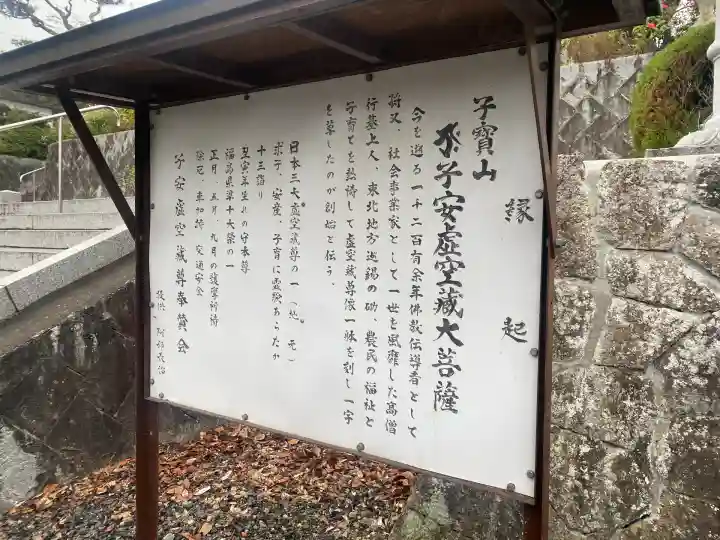 縁起
子寶山
子安虚空藏大菩薩
今を遡る一千二百有余年佛教伝導者として
将又、社会事業家として一世を風靡した高僧
行基上人、東北地方巡錫の砌、農民の福祉と
子育てを熱禱して虚空蔵尊像一躰を刻し一宇
を草したのが創始と伝う。
日本三大虚空蔵尊の一
求子、安産、子育に霊験あらたか
十三詣り
丑寅年生れの守本尊
福島県草十大榮の一
正月、五月、九月の護摩祈禱
除厄、車加持、交通安全
子安虚空蔵尊奉賛会